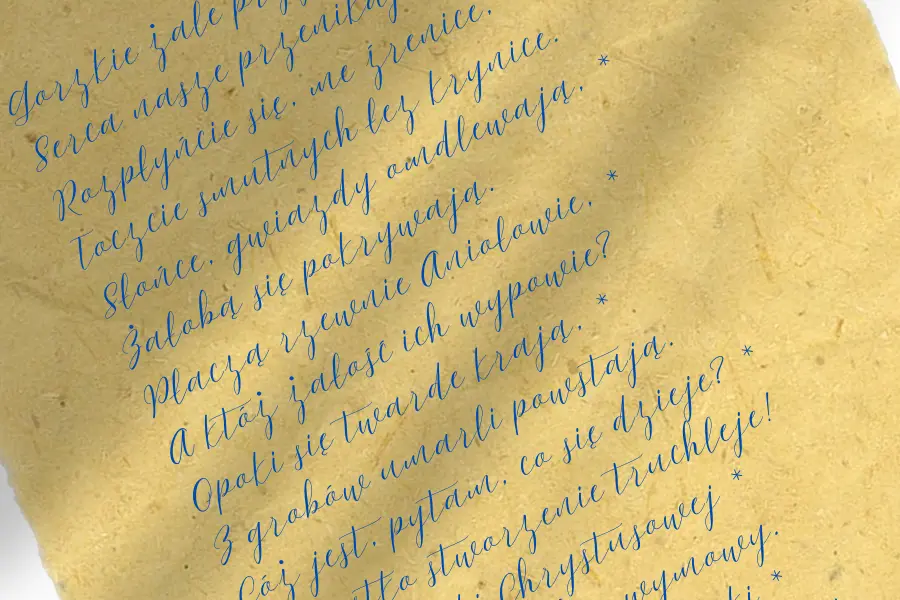 Gorzkie żale
Serca nasze
Rozpłyńcie się, me źrenice,
Toczcie smutnych łez krynice.
Słońce, gwiazdy omdlewają, *
Żałobą się pokrywają.
Płaczą rzewnie Aniołowie, *
A któż żałość ich wypowie?
Opoki się twarde krają, *
Z grobów umarli powstają.
Cóż jest, pytam, co się dzieje? *
stworzenie truchleje!
Chrystusowej *
wymowy.
*